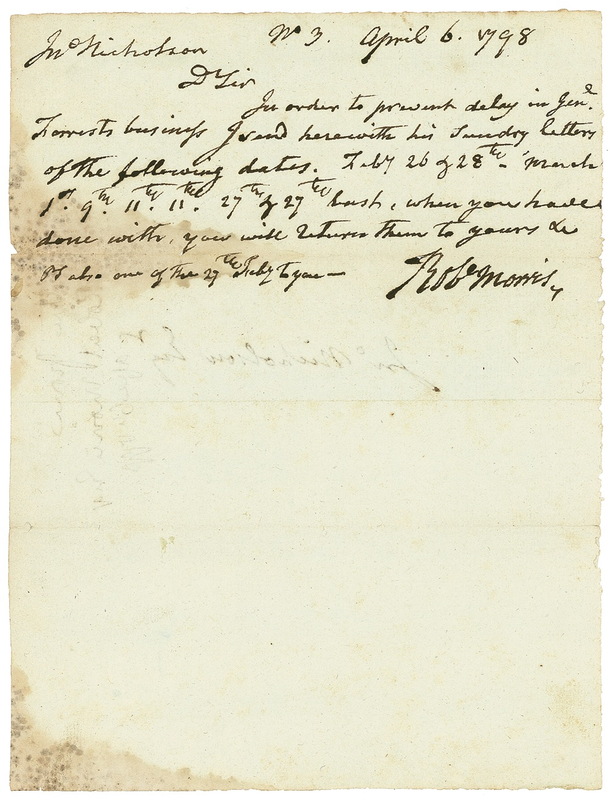 Jnᵒ Nicholson Nᵒ 3. April 6. 1798
Dʳ Sir
In order to prevent delay in Genˡ
Forrests business I send herewith his Sundry letters
of the following dates. Feby 26 & 28ᵗʰ - March
1ˢᵗ. 9ᵗʰ. 11ᵗʰ. 11ᵗʰ. 27ᵗʰ & 27ᵗʰ last, when you have
done with, you will return them to yours &c
PS also one of the 27ᵗʰ Feby to you —
Robᵗ Morris
Jnᵒ Nicholson Esqʳ